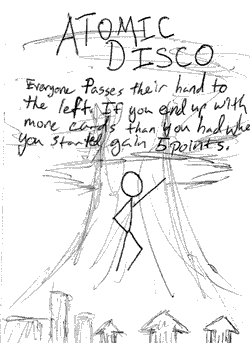 ATOMIC
DISCO
Everyone Passes their hand to
the left. If you end up with
more cards than you had when
you started gain 5 points.